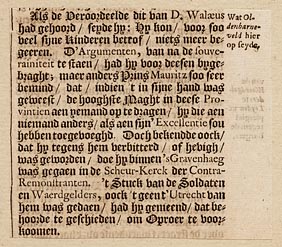 Als de Veroordeelde dit van D. Walæus
had gehoord / seyde hy: Hy kon / voor soo
veel sijne Kinderen betrof / niets meer be-
geeren. D'Argumenten, van na de souve-
rainiteit te staen / had hy voor deesen byge-
braght; maer anders Prins Mauritz soo seer
bemind / dat / indien 't in sijne hand was
geweest / de hooghste Maght in deese Pro-
vintien aen yemand op te dragen / hy die aen
niemand anders / als aen sijn' Excellentie sou
hebben toegevoeghd. Doch bekende oock /
dat hy tegens hem verbitterd / of hevigh /
was geworden / doe hy binnen 's Gravenhaeg
was gegaen in de Scheur-Kerck der Contra-
Remonstranten. 't Stuck van de Soldaten
en Waerdgelders, oock 't geent' Utrecht van
hem was gedaen / had hy gemeend / dat be-
hoorde te geschieden / om Oproer te voor-
koomen.
Wat Ol-
denbarne-
veld hier
op seyde,